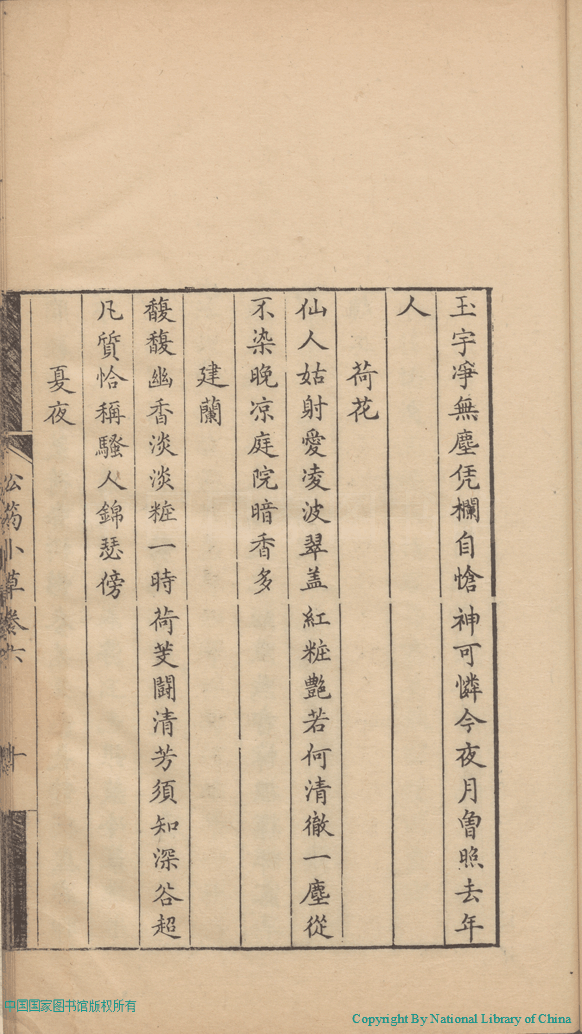 玉宇凈無塵凭欄自愴神可憐今夜月曾照去年
人
荷花
仙人姑射愛凌波翠盖紅粧艷若何清徹一塵從
不染晚凉庭院暗香多
建蘭
馥馥幽香淡淡粧一時荷芰鬪清芳須知深谷超
凡質恰稱騷人錦瑟傍
夏夜
小草卷六
中国国家图书馆版权所有
Copyright By National Library of China